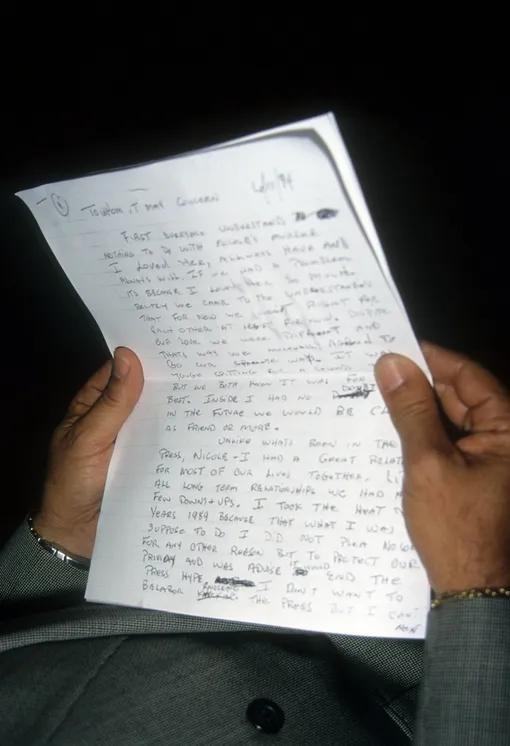 ①
TO WHOM IT MAY CONCERN
FIRST EVERYONE UNDERSTAND
NOTHING TO DO WITH NICOLE'S MURDER
I LOVED HER, ALLWAYS HAVE AND
ALWAYS WILL. IF WE HAD A PROBLEM
ITS BECAUSE I LOVED HER SO MUCH.
RECITLY WE CAME TO THE UNDERSTANDING
THAT FOR NOW WE RIGHT FOR
EACH OTHER AT LEAST FOR NOW. DISPITE
OUR LOVE WE WERE DIFFERENT AND
THATS WHY WE MUTUALLY AGREED TO
GO OUR WAYS. IT WAS
TOUGH SPLITTING FOR A SECOND
BUT WE BOTH KNOW IT WAS FOR
BEST. INSIDE I HAD NO DOUBT
IN THE FUTURE WE WOULD BE CL
AS FRIEND OR MORE.
UNLIKE WHATS BEEN IN THE
PRESS, NICOLE + I HAD A GREAT RELAT
FOR MOST OF OUR LIVES TOGETHER. LI
ALL LONG TERM RELATIONSHIPS WE HAD A
FEW DOWNS + UPS. I TOOK THE HEAT
YEARS 1989 BECAUSE THAT WHAT I WAS
SUPPOSE TO DO I DID NOT PLEA NO CO
FOR ANY OTHER REASON BUT TO PROTECT OUR
PRIVICY AND WAS ADVISE IT WOULD END THE
PRESS HYPE I DON'T WANT TO
BELABOR THE PRESS BUT I CAN'T